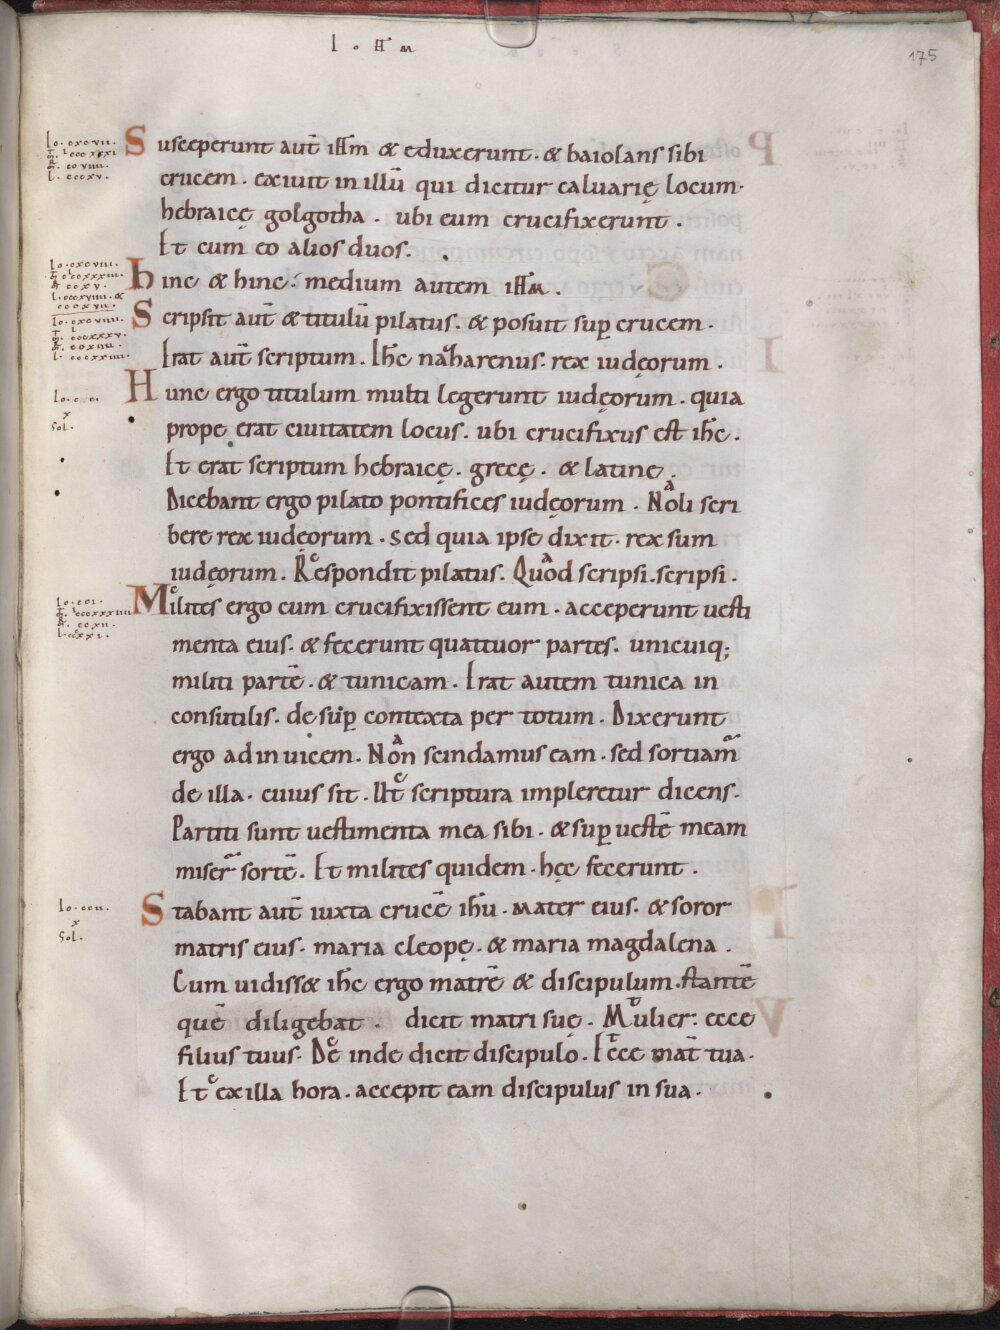 175
Susceperunt aut̄ ih̄m & eduxerunt · & baiolans sibi
crucem · exiuit in illū qui dicitur caluarię locum·
hebraicę golgotha · ubi eum crucifixerunt ·
Et cum eo alios duos.
hinc & hinc · medium autem ih̄m .
Scripsit aut̄ & titulū pilatus . & posuit sup̄ crucem ·
Erat aut̄ scriptum . Ih̄c nazharenus · rex iudęorum .
Hunc ergo titulum multi legerunt iudęorum · quia
prope erat ciuitatem locus . ubi crucifixus est ih̄c .
Et erat scriptum hebraicę . grecę . & latine .
Dicebant ergo pilato pontifices iudęorum . Noli scri
bere rex iudęorum . sed quia ipse dixit . rex sum
iudęorum . Respondit pilatus . Quod scripsi . scripsi .
Milites ergo cum crucifixissent eum . acceperunt uesti
menta eius . & fecerunt quattuor partes . unicuiq;
militi partē . & tunicam . Erat autem tunica in
consutilis . de sup̄ contexta per totum . Dixerunt
ergo ad in uicem . Non scindamus eam . sed sortiam̄
de illa . cuius sit . Ut scriptura impleretur dicens .
Partiti sunt uestimenta mea sibi . & sup̄ uestē meam
miser̄ sortē . Et milites quidem . hęc fecerunt .
Stabant aut̄ iuxta crucē ih̄u . mater eius . & soror
matris eius . maria cleopę . & maria magdalena .
Cum uidiss& ih̄c ergo matrē & discipulum stantē
quē diligebat . dicit matri suę . Mulier : ecce
filius tuus . De inde dicit discipulo . Ecce mat̄ tua .
Et ex illa hora . accepit eam discipulus in sua .